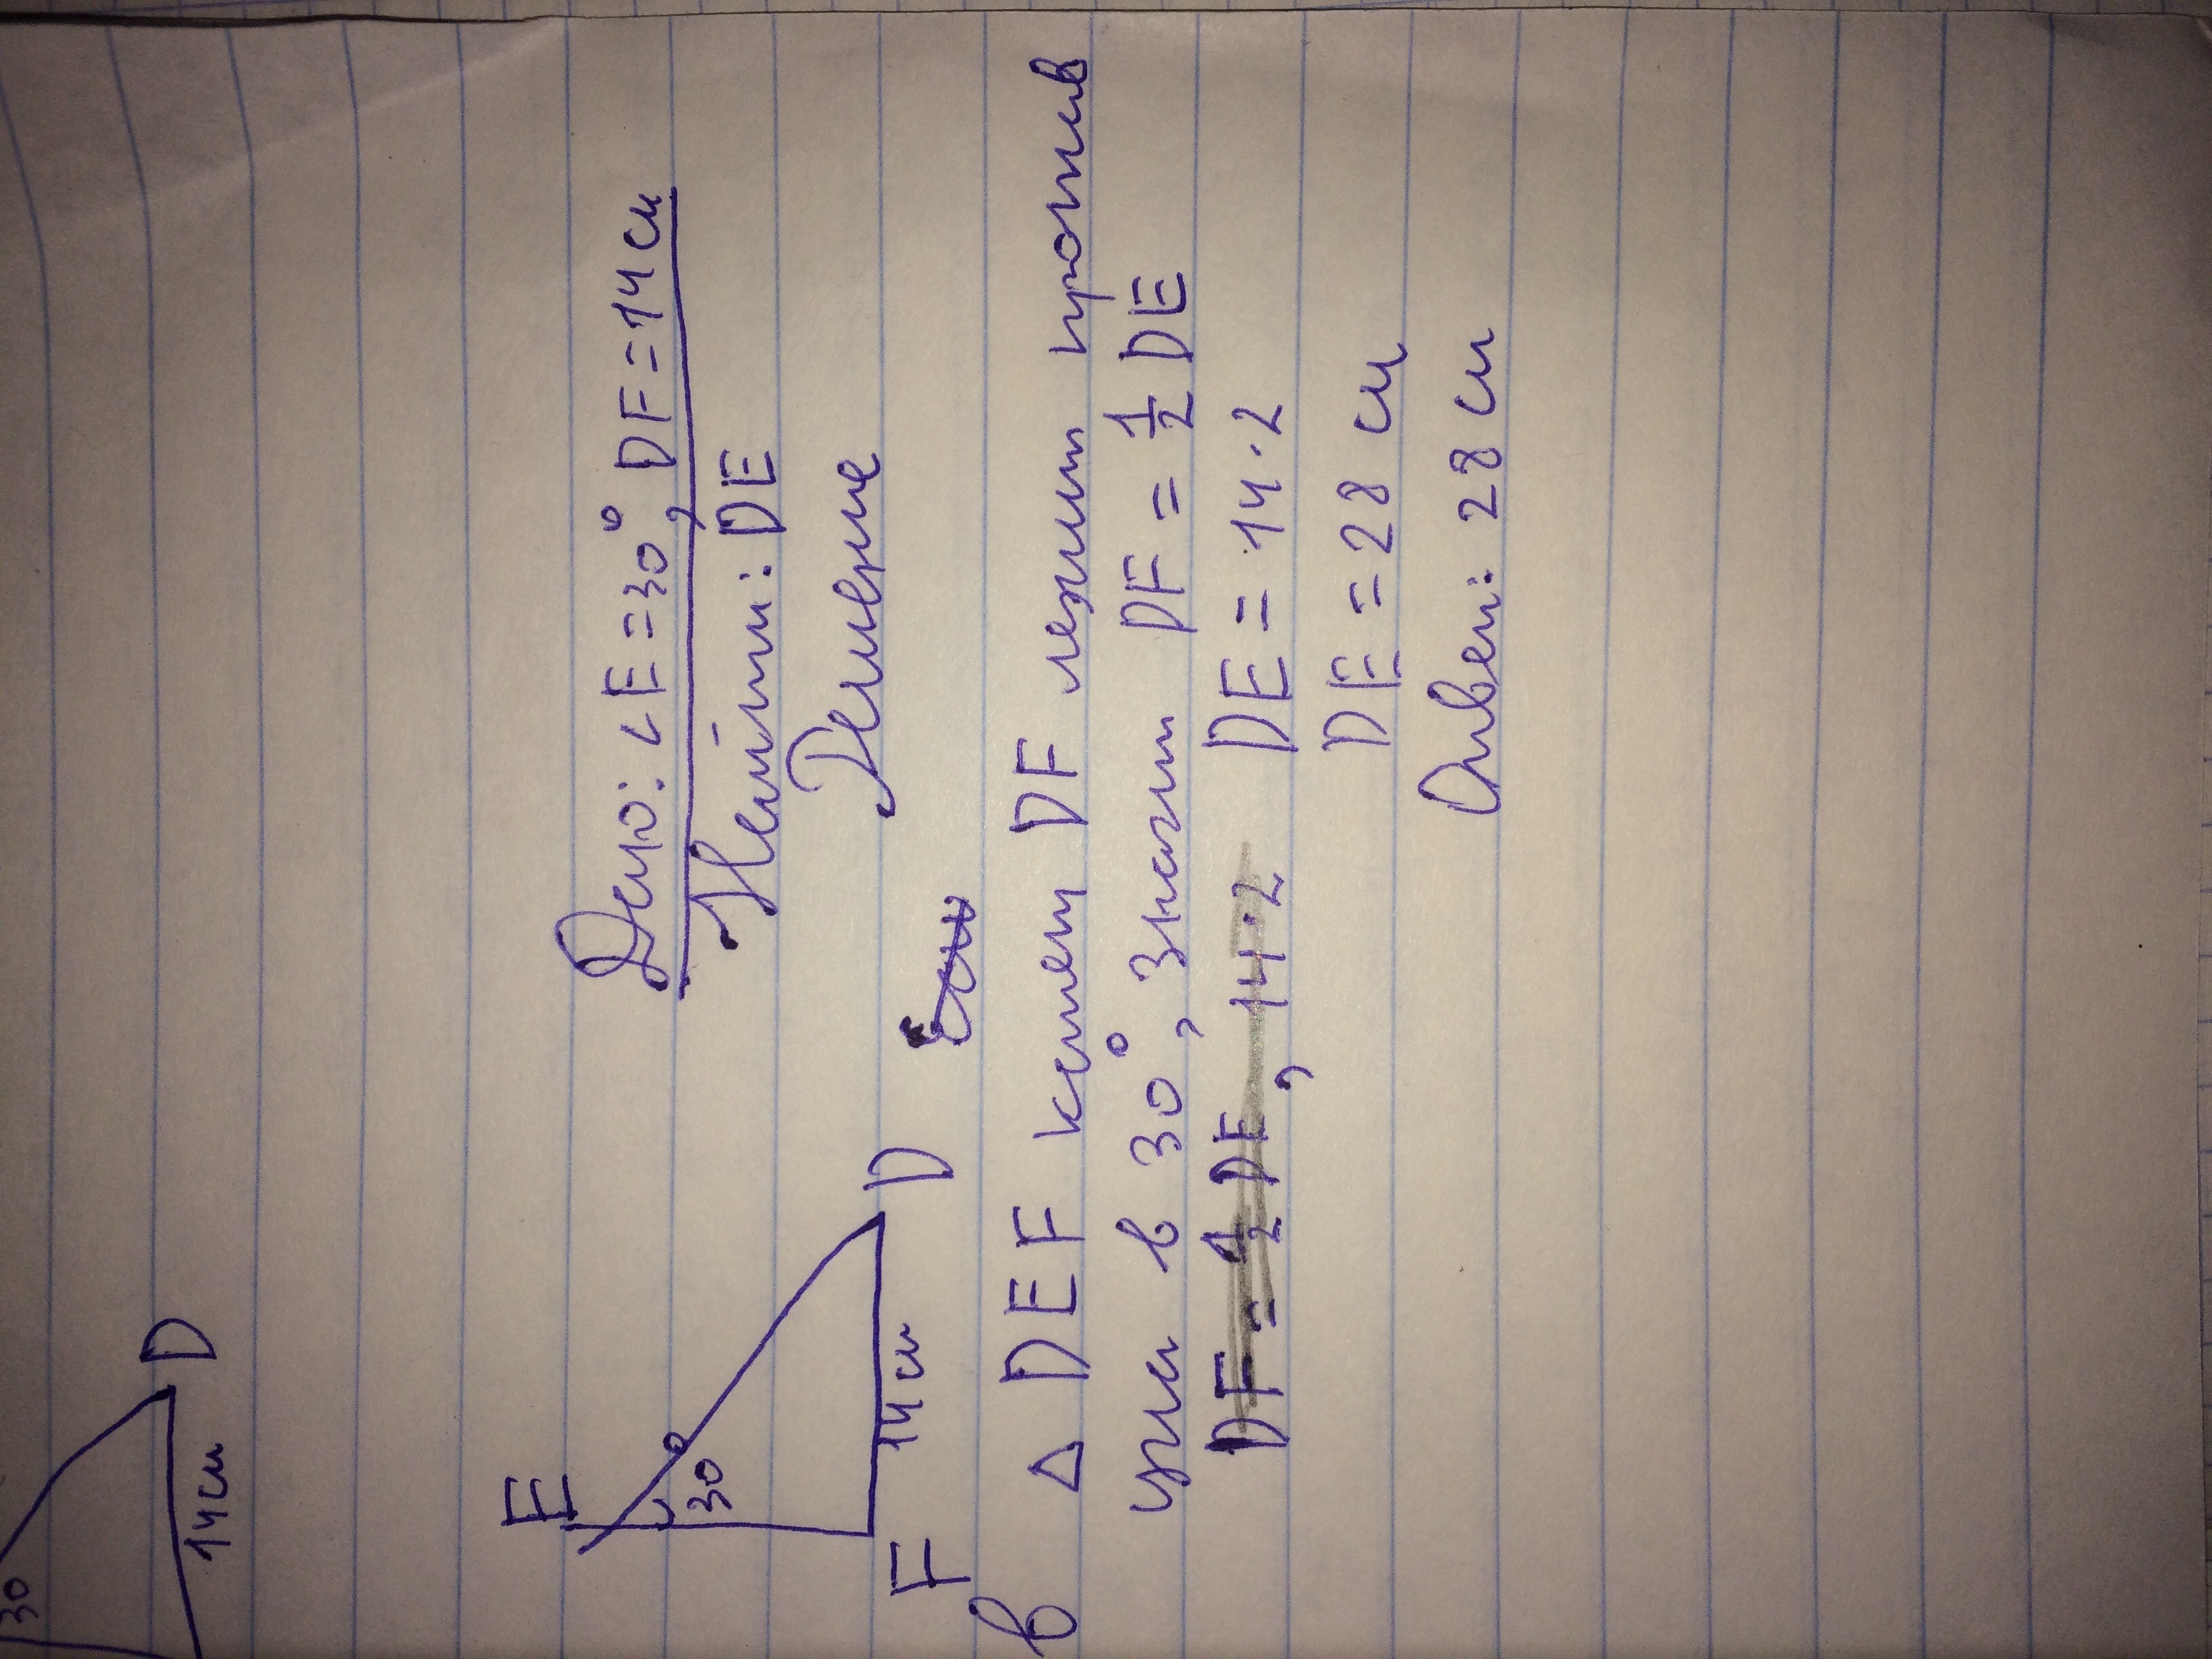 30
14 см D
E
30°
Дано: ∠E = 30°, DF = 14 см
Найти: DE
Решение
F 14 см D
В △ DEF катет DF лежит против
угла в 30°, значит DF = 1/2 DE
DF = 1/2 DE, 14·2 DE = 14·2
DE = 28 см
Ответ: 28 см